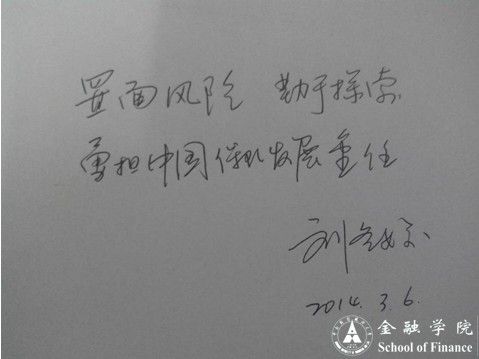 直面风险 勤于探索
勇担中国保险发展重任
刘冬姣
2014.3.6.
金融学院
School of Finance